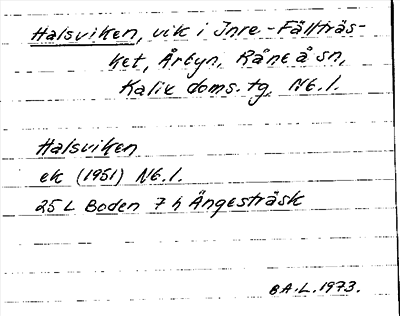 Halsviken, vik i Inre-Fällträs-
ket, Årbyn, Råneå sn,
Kalix doms. tg. Nb.l.
Halsviken
ek (1951) Nb.l.
25 L Boden 7 h Ängesträsk
B.A.L. 1973.